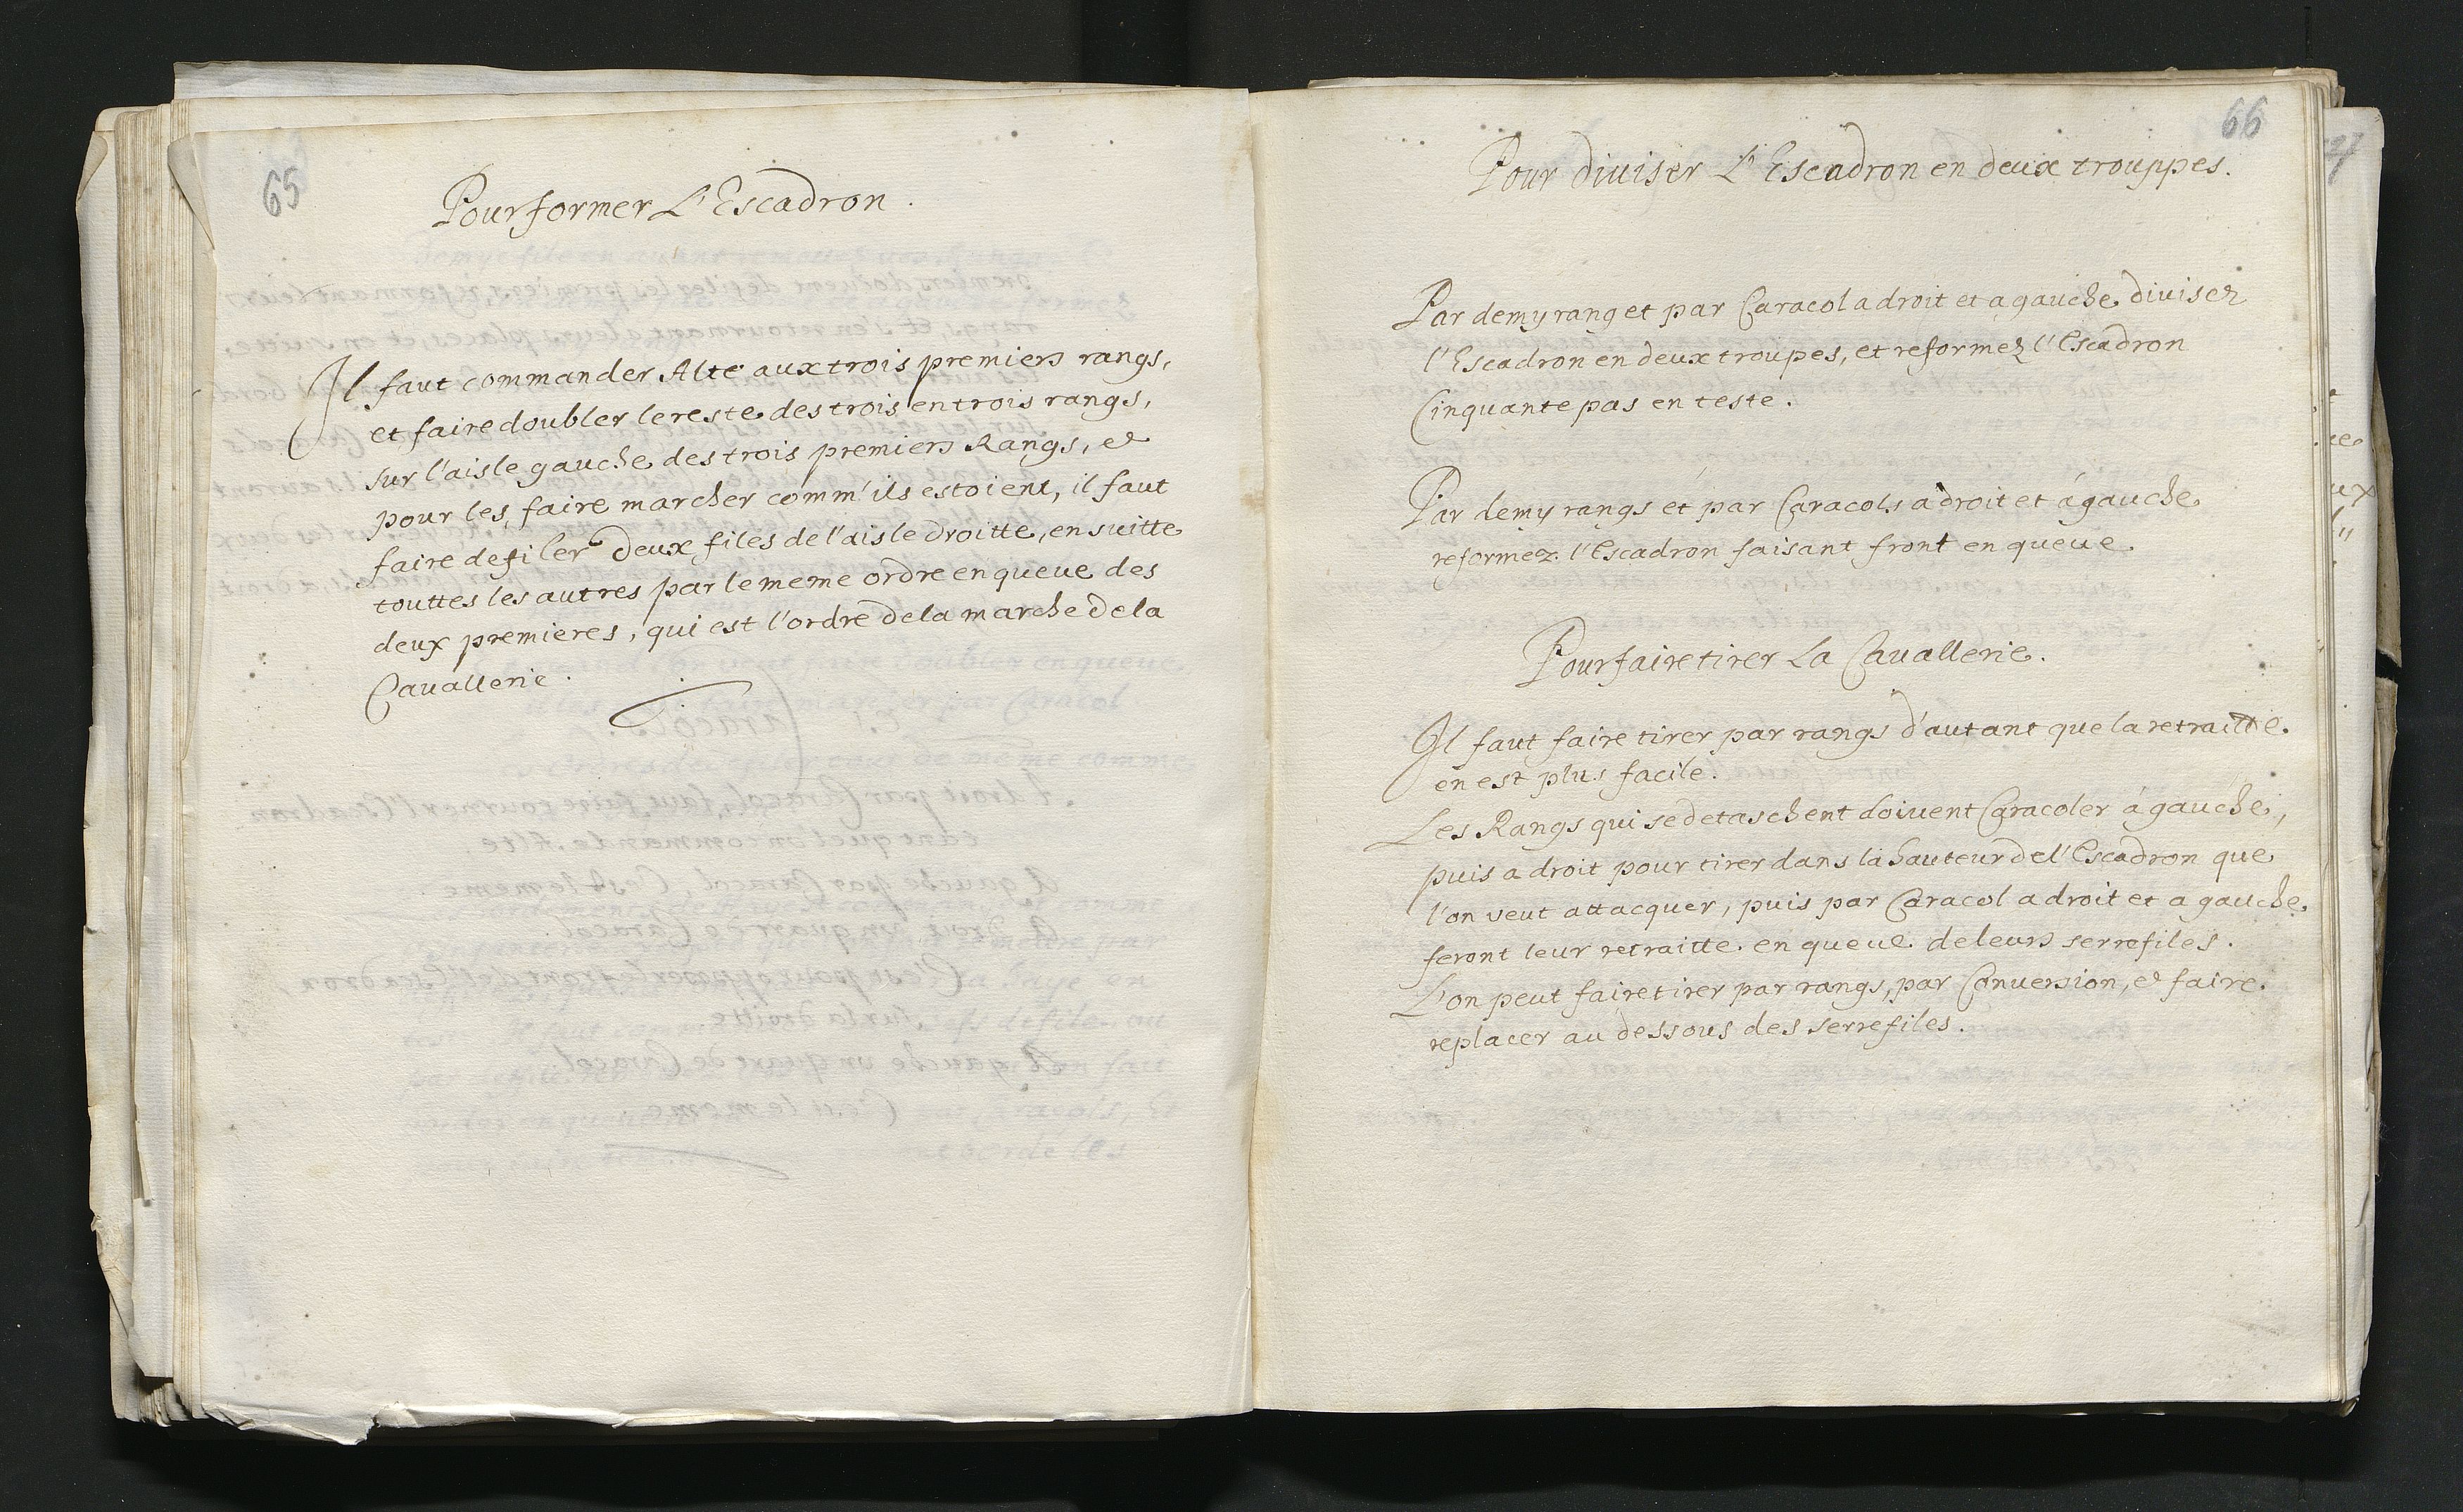 65
Pour former L'Escadron.
Il faut commander Alte aux trois premiers rangs,
et faire doubler le reste des trois en trois rangs,
sur l'aisle gauche des trois premiers Rangs, et
pour les faire marcher comm'ils estoient, il faut
faire defiler deux files de l'aisle droitte, en suitte
touttes les autres par le meme ordre en queue des
deux premieres, qui est l'ordre de la marche de la
Cavallerie.
66
Pour diuiser L'Escadron en deux trouppes.
Par demy rang et par Caracol a droit et a gauche diuisez
l'Escadron en deux troupes, et reformez l'Escadron
Cinquante pas en teste.
Par demy rangs et par Caracols a droit et á gauche
reformez l'Escadron faisant front en queue.
Pour faire tirer La Cauallerie.
Il faut faire tirer par rangs d'autant que la retraitte
en est plus facile.
Les Rangs qui se detaschent doiuent Caracoler á gauche,
puis a droit pour tirer dans la hauteur de l'Escadron que
l'on veut attacquer, puis par Caracol a droit et a gauche
feront leur retraitte en queue de leurs serrefiles.
L'on peut faire tirer par rangs, par Conuersion, et faire
replacer au dessous des serrefiles.